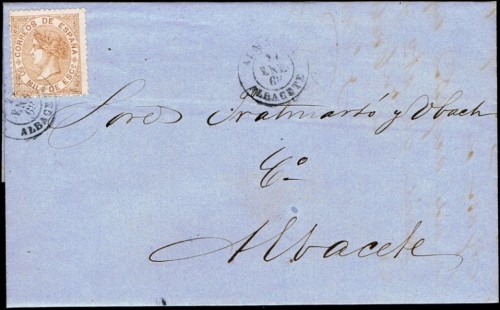 CORREOS DE ESPAÑA
MIL S DE ESC
ENE
69
ALBACETE
ALBACETE
Sores Fratmartó y Ubach
Cº
Albacete